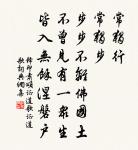 常獨行
常獨步
步步不離佛國土
不曾見有一眾生
皆入無餘涅槃戶
釋印肅頌證道歌證道
歌詞典網書